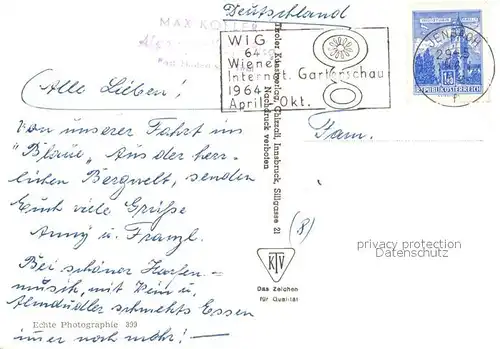 Deutschland
MAX KOFLER
WIG
64
Wiener
Internat. Gartenschau
1964
April-Okt.
JENBACH
REPUBLIK ÖSTERREICH
Alle Lieben!
Von unserer Fahrt ins
"Blaue", aus der herr-
lichen Bergwelt, senden
Euch viele Grüße
Anny u. Franzl.
Bei schöner Harfen-
musik, mit Wein u.
Almdudler schmeckts Essen
immer noch mehr!—
Echte Photographie 399
Tiroler Kunstverlag, Chizzali, Innsbruck, Sillgasse 21
Nachdruck verboten
Fam.
(8)
KTV
Das Zeichen
für Qualität
privacy protection
Datenschutz